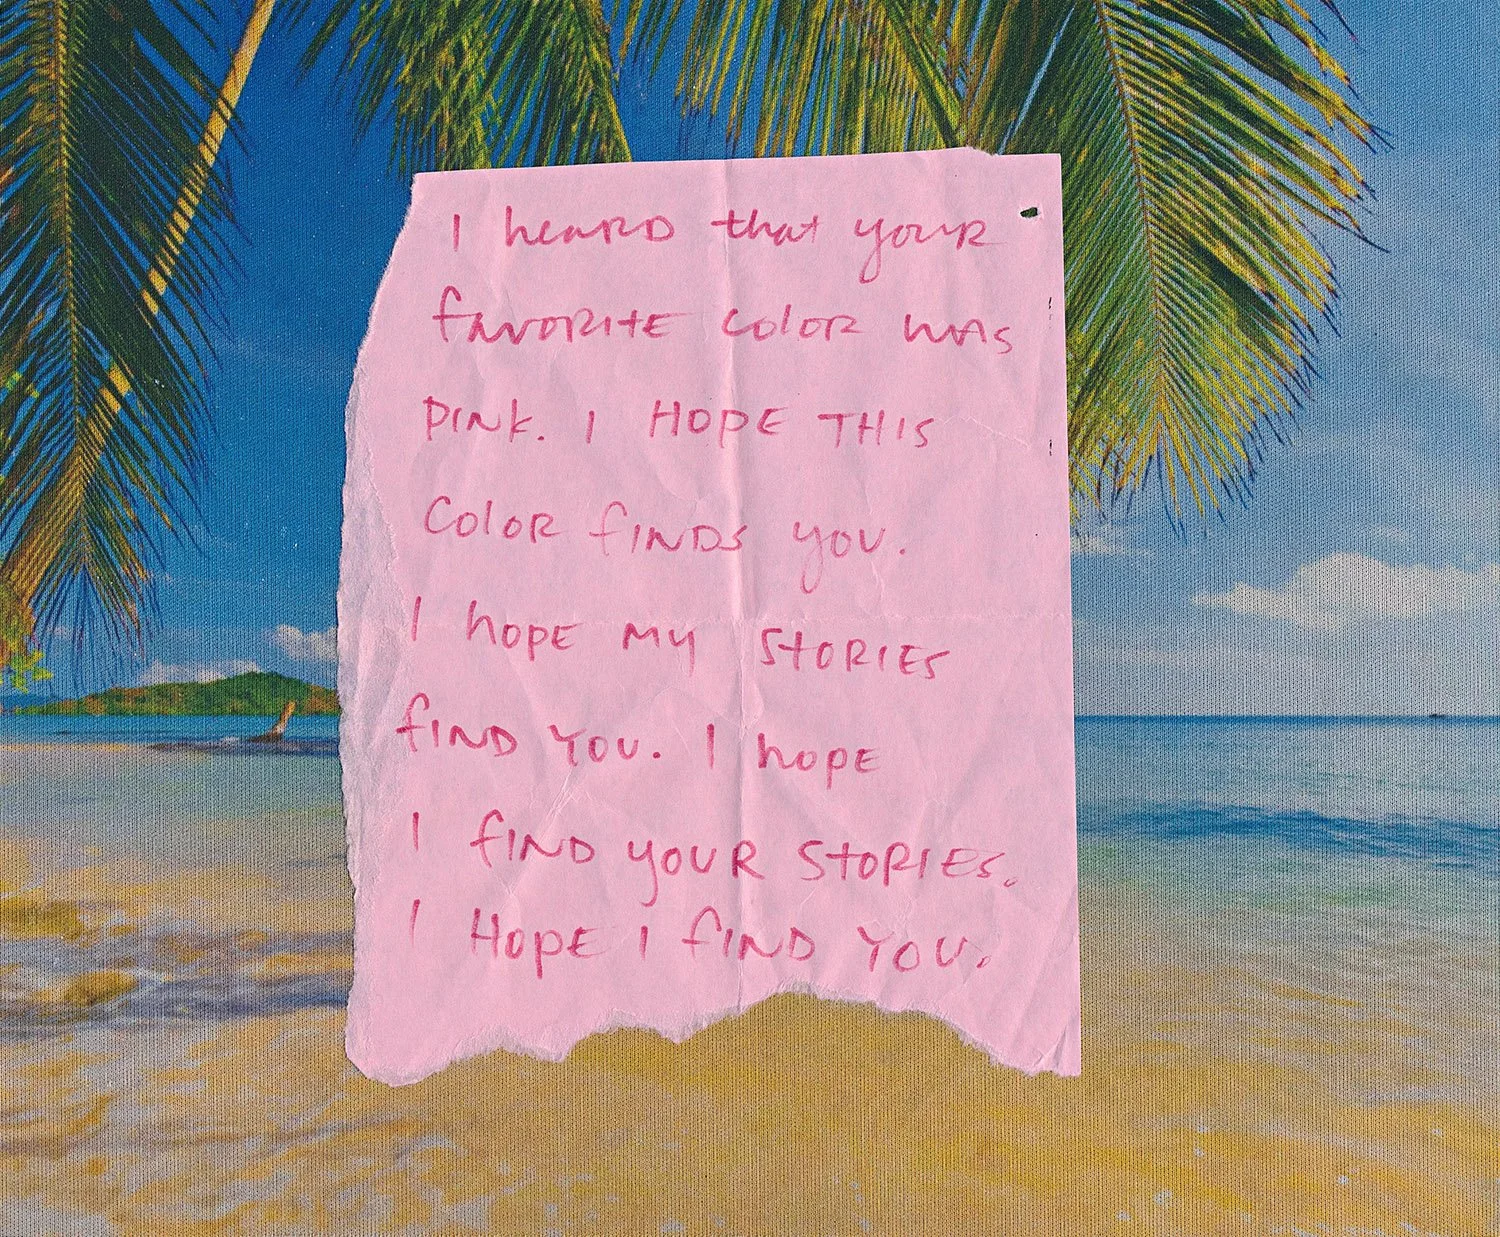 I heARD that youR
fAVORITE COlOR WAS
PINK. I HOPE THIS
COlOR fINDS yOU.
I hOPE MY STORIES
fIND YOU. I hOPE
I fIND yOUR STORIES.
I HOPE I fIND YOU.